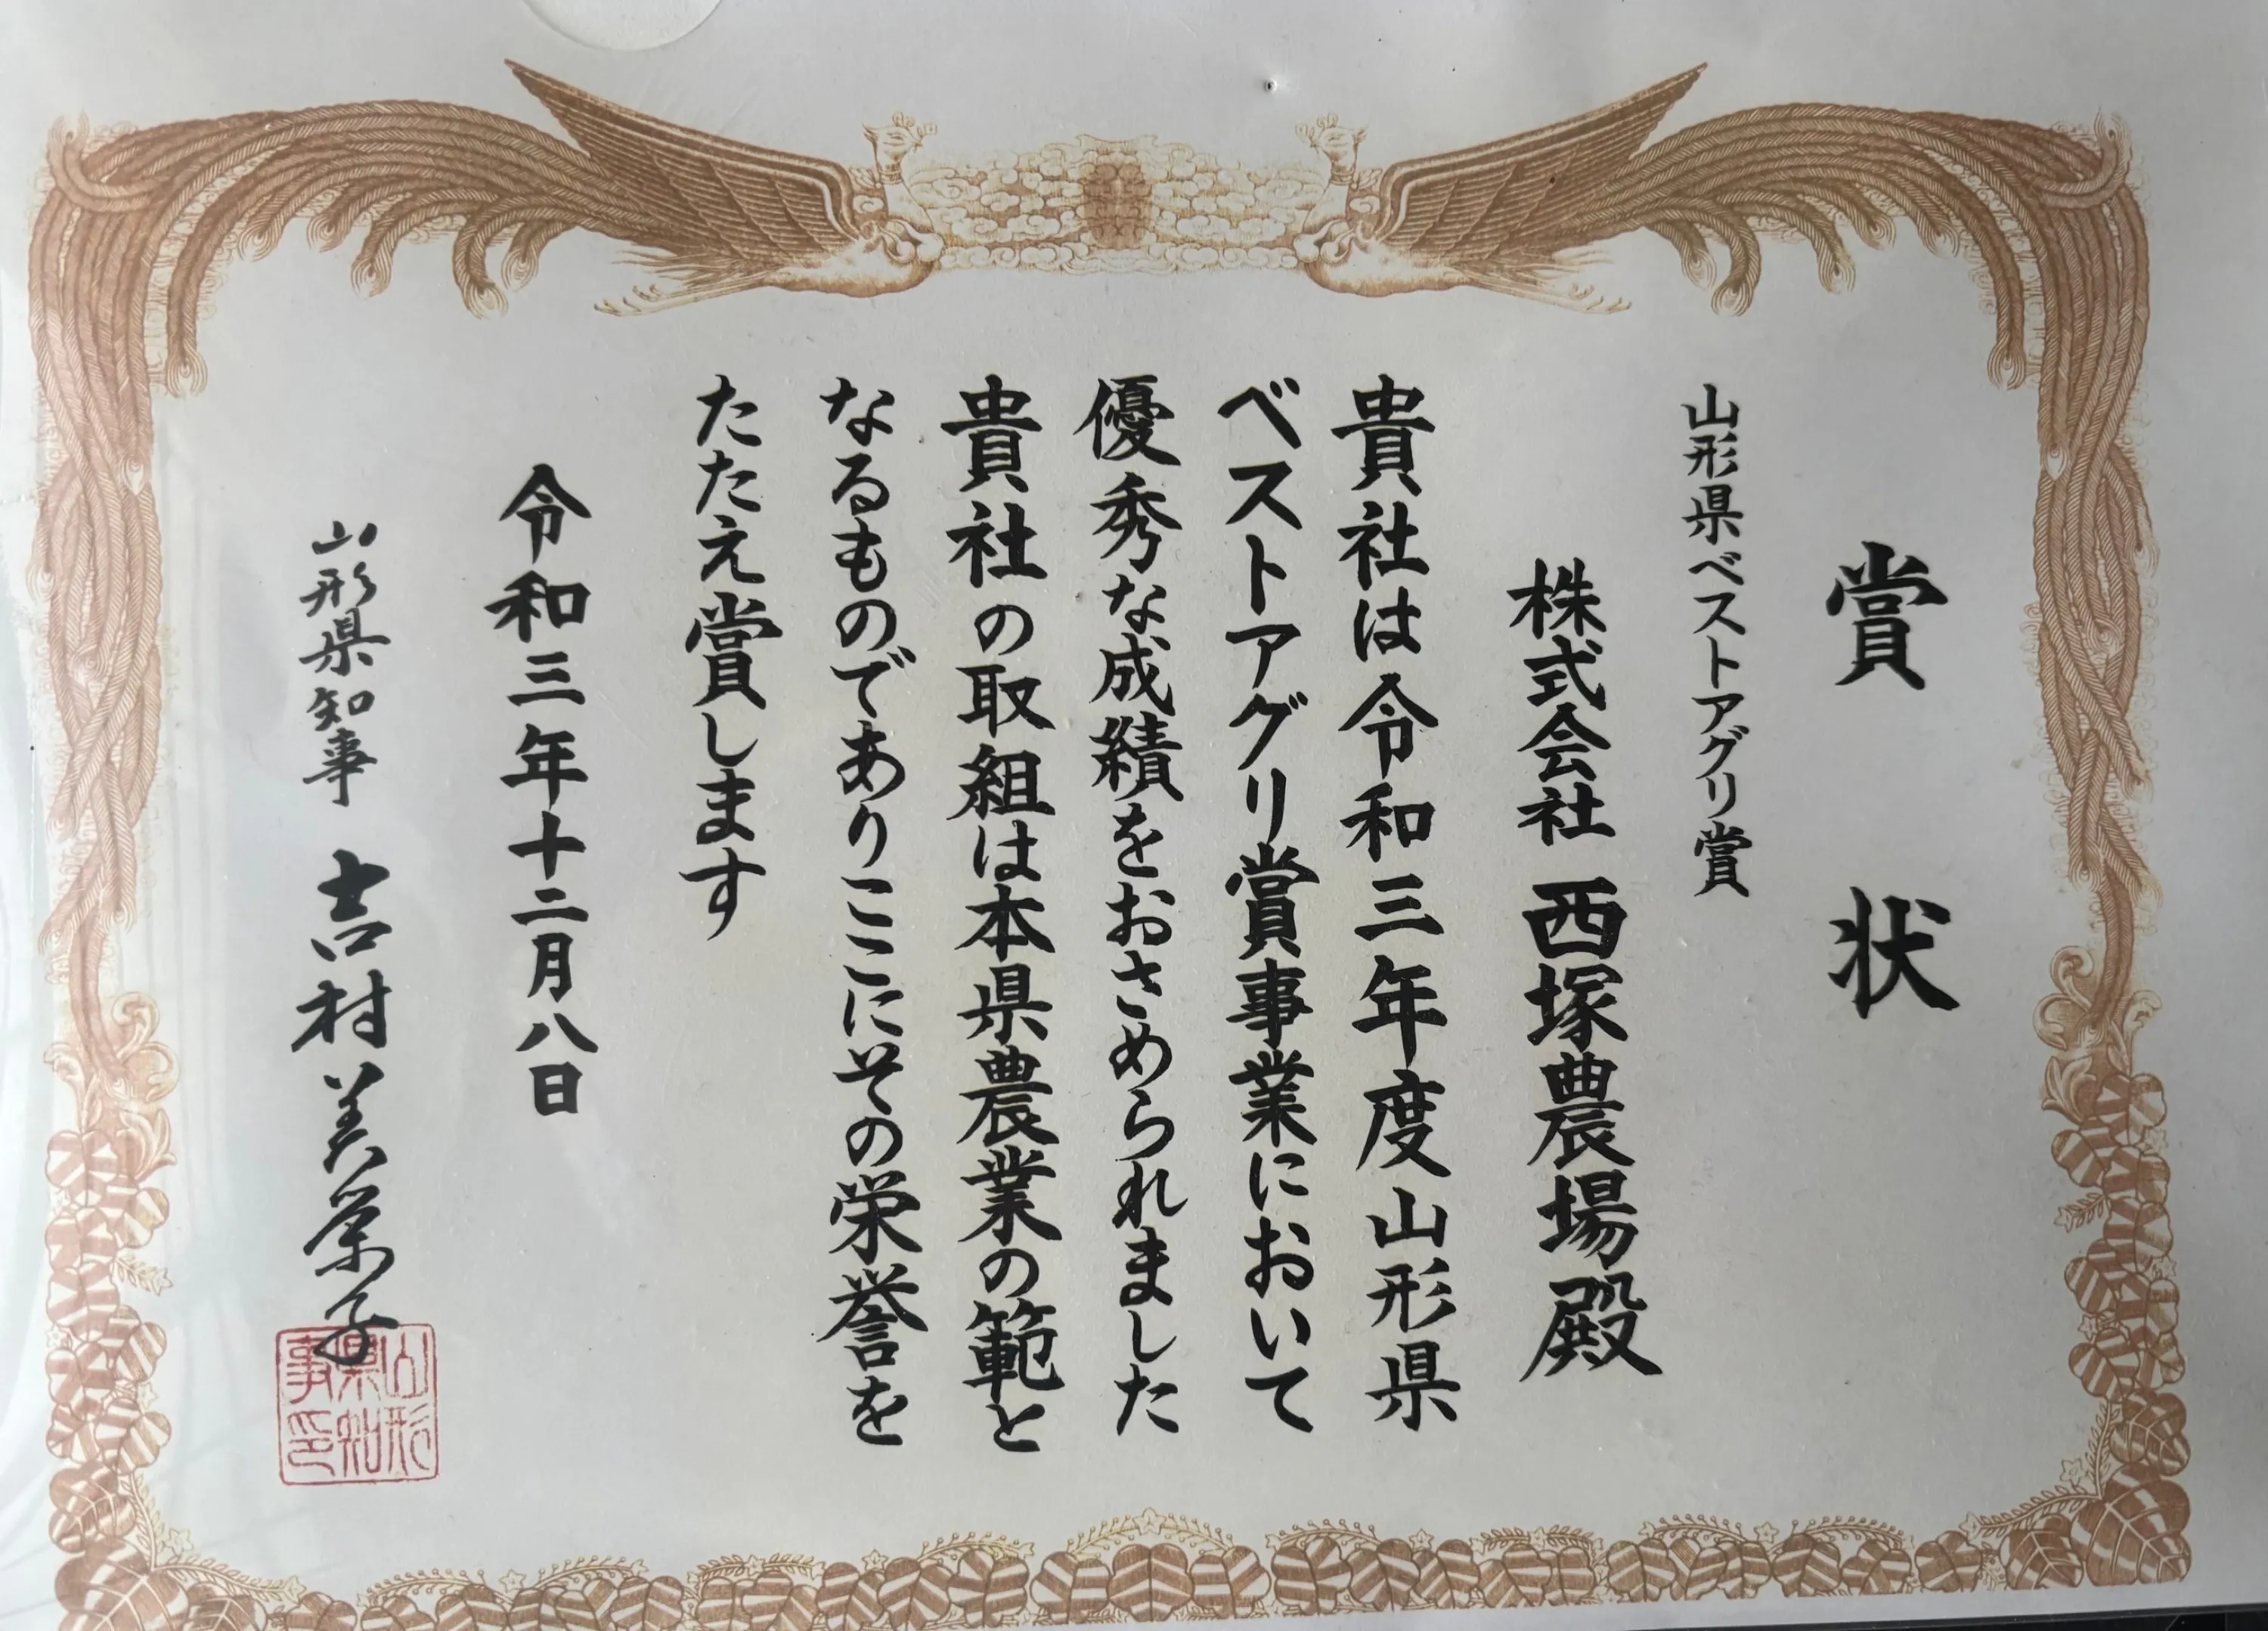 賞状
山形県ベストアグリ賞
株式会社 西塚農場殿
貴社は令和三年度山形県
ベストアグリ賞事業において
優秀な成績をおさめられました
貴社の取組は本県農業の範と
なるものでありここにその栄誉を
たたえ賞します
令和三年十二月八日
山形県知事 吉村美栄子
山形県知事印